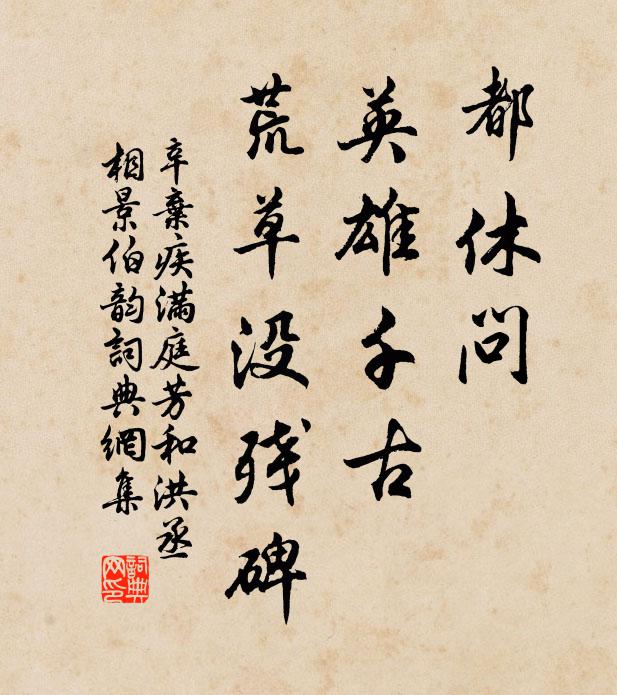 都休问
英雄千古
荒草没残碑
辛棄疾满庭芳和洪丞
相景伯韵詞典網集
詞典
网印